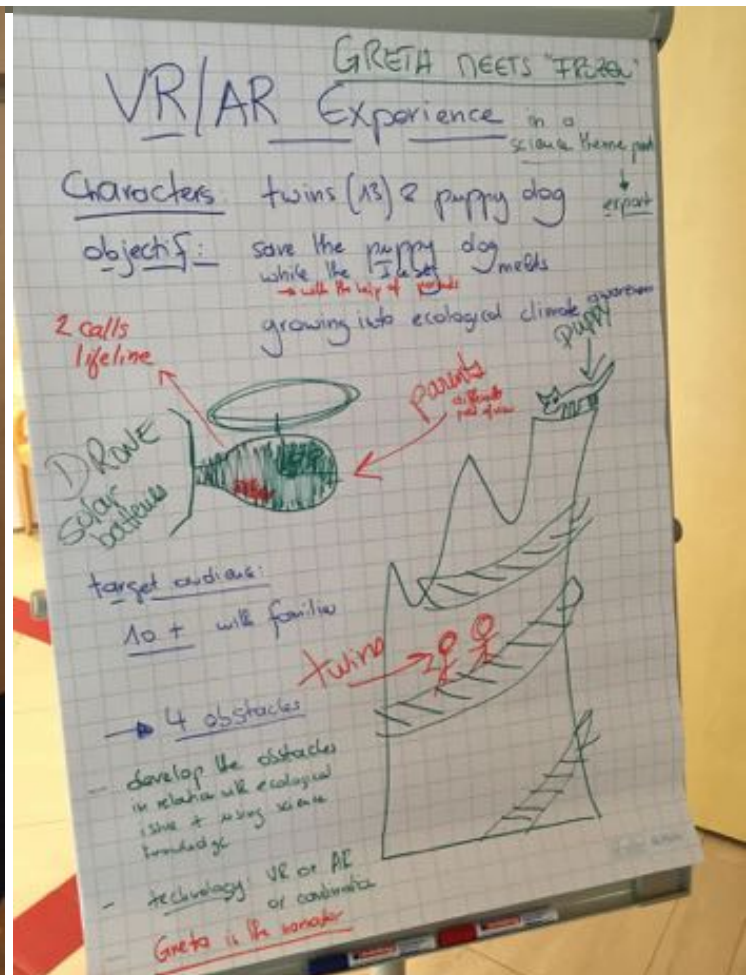 GRETA MEETS "FROZEN"
VR/AR Experience
in a
science theme park
export
Characters: twins (13) & puppy dog
objectif: save the puppy dog
while the Iceberg melts
→ with the help of parents
growing into ecological climate awareness
2 calls
lifeline
parents
different
point of view
puppy
DRONE
solar
batteries
target audience:
10 + with families
twins
→ 4 obstacles
- develop the obstacles
in relation with ecological
issue + using science
knowledge
- technology: VR or AR
or combination
Greta is the narrator